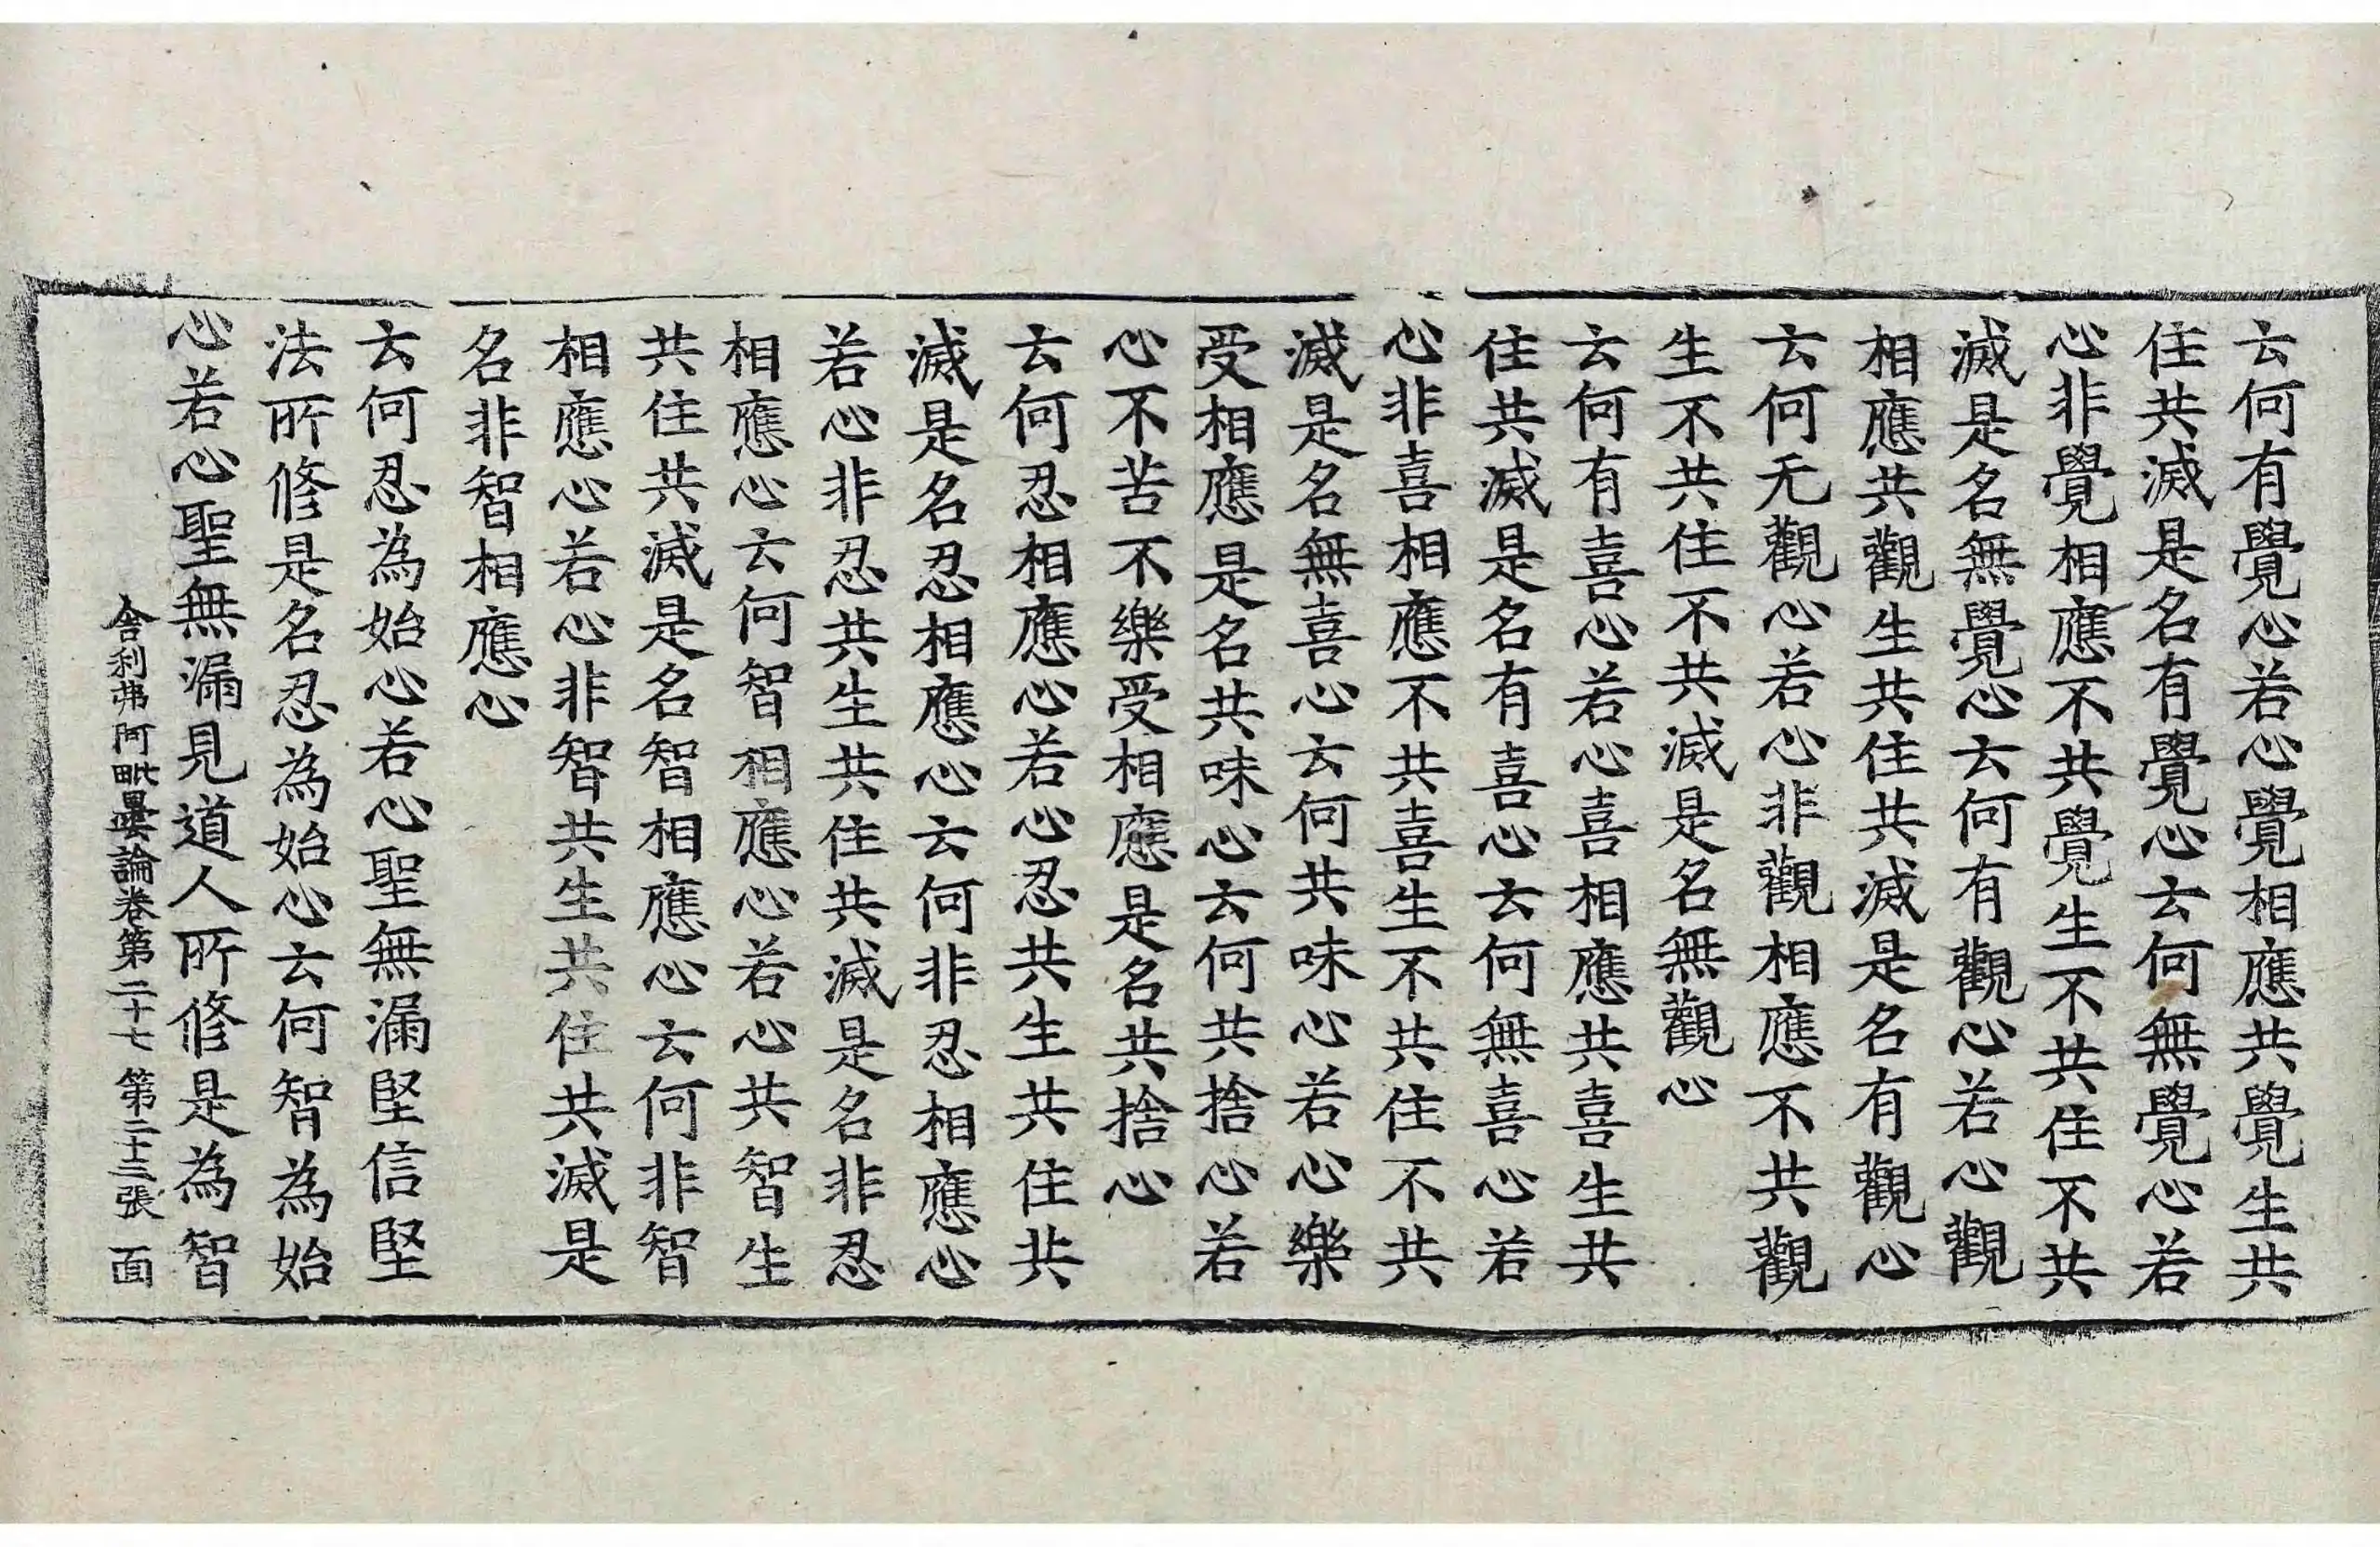 云何有覺心若心覺相應共覺生共
住共滅是名有覺心云何無覺心若
心非覺相應不共覺生不共住不共
滅是名無覺心云何有觀心若心觀
相應共觀生共住共滅是名有觀心
云何无觀心若心非觀相應不共觀
生不共住不共滅是名無觀心
云何有喜心若心喜相應共喜生共
住共滅是名有喜心云何無喜心若
心非喜相應不共喜生不共住不共
滅是名無喜心云何共味心若心樂
受相應是名共味心云何共捨心若
心不苦不樂受相應是名共捨心
云何忍相應心若心忍共生共住共
滅是名忍相應心云何非忍相應心
若心非忍共生共住共滅是名非忍
相應心云何智相應心若心共智生
共住共滅是名智相應心云何非智
相應心若心非智共生共住共滅是
名非智相應心
云何忍為始心若心聖無漏堅信堅
法所修是名忍為始心云何智為始
心若心聖無漏見道人所修是為智
舍利弗阿毗曇論卷第二十七 第二十三張 面